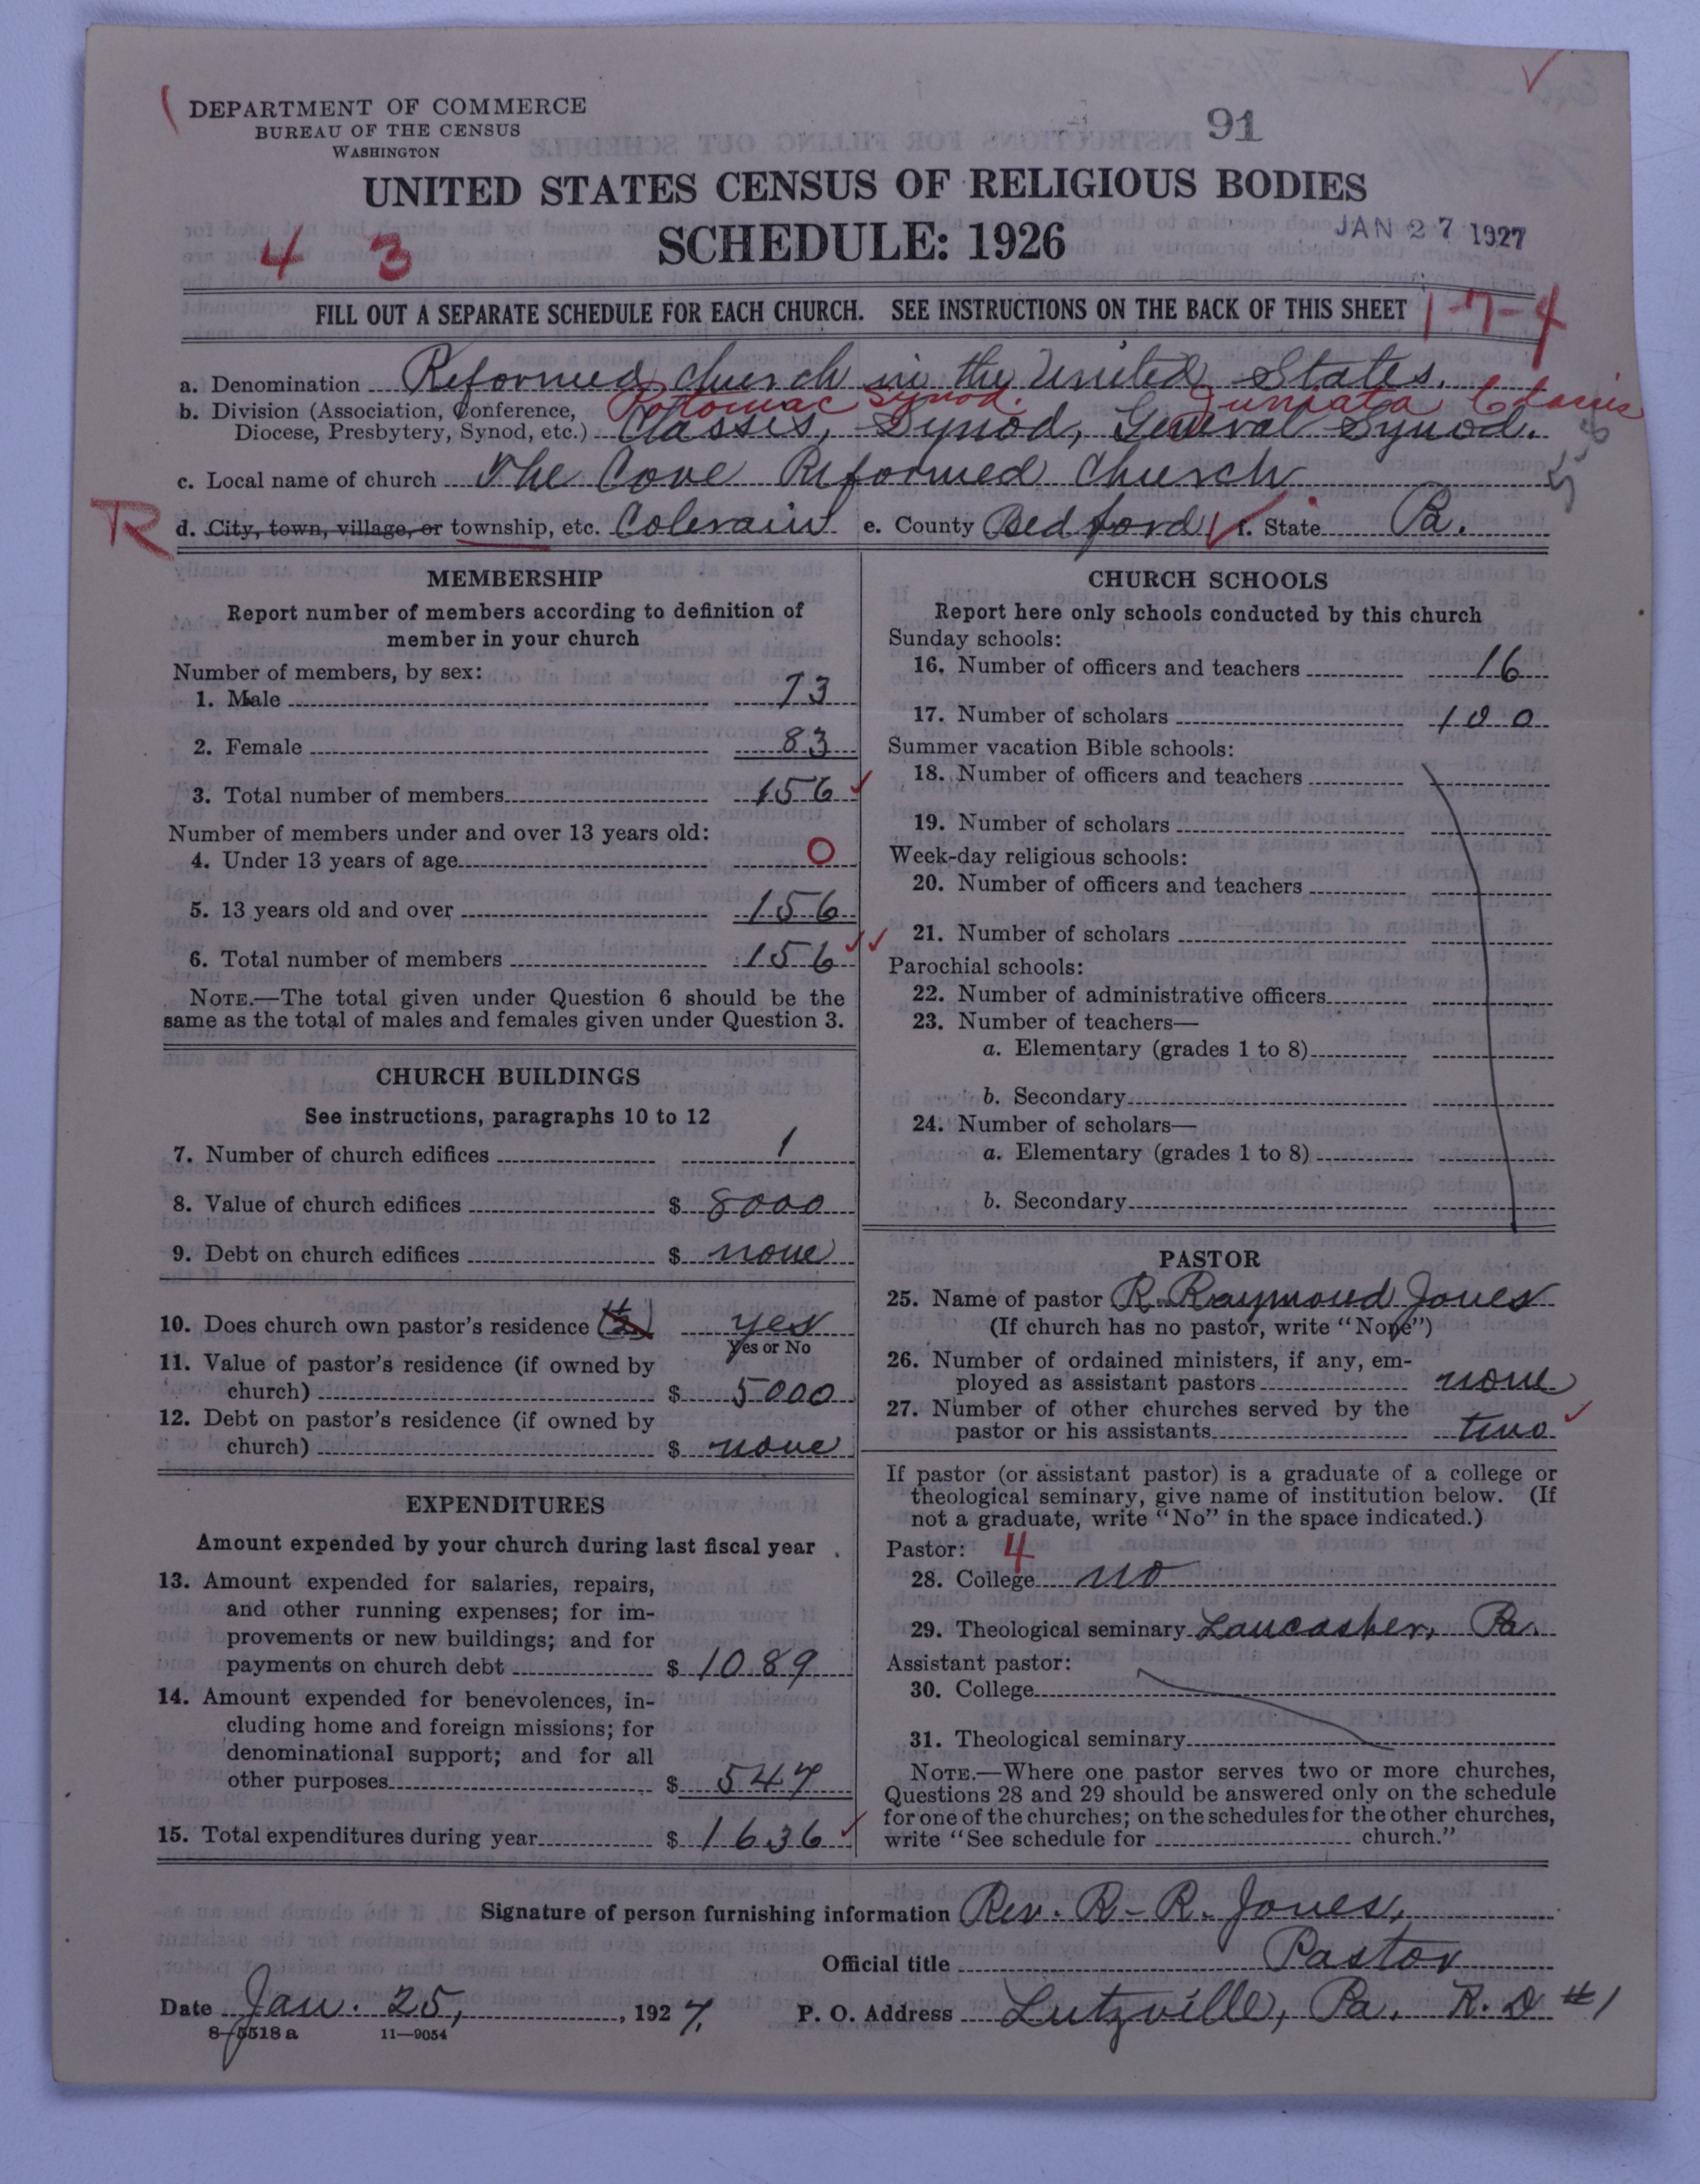 DEPARTMENT OF COMMERCE
BUREAU OF THE CENSUS
WASHINGTON
91
UNITED STATES CENSUS OF RELIGIOUS BODIES
SCHEDULE: 1926
JAN 27 1927
4 3
FILL OUT A SEPARATE SCHEDULE FOR EACH CHURCH. SEE INSTRUCTIONS ON THE BACK OF THIS SHEET
1-7-4
a. Denomination Reformed Church in the United States.
Potomac Synod. Juniata Classis
b. Division (Association, Conference, Diocese, Presbytery, Synod, etc.) Classis, Synod, General Synod.
c. Local name of church The Cove Reformed Church
R d. City, town, village, or township, etc. Colerain e. County Bedford f. State Pa.
MEMBERSHIP
Report number of members according to definition of
member in your church
Number of members, by sex:
1. Male 73
2. Female 83
3. Total number of members 156
Number of members under and over 13 years old:
4. Under 13 years of age 0
5. 13 years old and over 156
6. Total number of members 156
NOTE.—The total given under Question 6 should be the
same as the total of males and females given under Question 3.
CHURCH BUILDINGS
See instructions, paragraphs 10 to 12
7. Number of church edifices 1
8. Value of church edifices $ 8000
9. Debt on church edifices $ none
10. Does church own pastor's residence yes
Yes or No
11. Value of pastor's residence (if owned by
church) $ 5000
12. Debt on pastor's residence (if owned by
church) $ none
EXPENDITURES
Amount expended by your church during last fiscal year
13. Amount expended for salaries, repairs,
and other running expenses; for im-
provements or new buildings; and for
payments on church debt $ 1089
14. Amount expended for benevolences, in-
cluding home and foreign missions; for
denominational support; and for all
other purposes $ 547
15. Total expenditures during year $ 1636
CHURCH SCHOOLS
Report here only schools conducted by this church
Sunday schools:
16. Number of officers and teachers 16
17. Number of scholars 100
Summer vacation Bible schools:
18. Number of officers and teachers
19. Number of scholars
Week-day religious schools:
20. Number of officers and teachers
21. Number of scholars
Parochial schools:
22. Number of administrative officers
23. Number of teachers—
a. Elementary (grades 1 to 8)
b. Secondary
24. Number of scholars—
a. Elementary (grades 1 to 8)
b. Secondary
PASTOR
25. Name of pastor R. Raymond Jones
(If church has no pastor, write "None")
26. Number of ordained ministers, if any, em-
ployed as assistant pastors none
27. Number of other churches served by the
pastor or his assistants two
If pastor (or assistant pastor) is a graduate of a college or
theological seminary, give name of institution below. (If
not a graduate, write "No" in the space indicated.)
Pastor: 4
28. College no
29. Theological seminary Lancaster, Pa.
Assistant pastor:
30. College
31. Theological seminary
NOTE.—Where one pastor serves two or more churches,
Questions 28 and 29 should be answered only on the schedule
for one of the churches; on the schedules for the other churches,
write "See schedule for church."
Signature of person furnishing information Rev. R. R. Jones,
Official title Pastor
Date Jan. 25, 1927. P. O. Address Lutzville, Pa. R. D #1
8-5518 a 11—9054